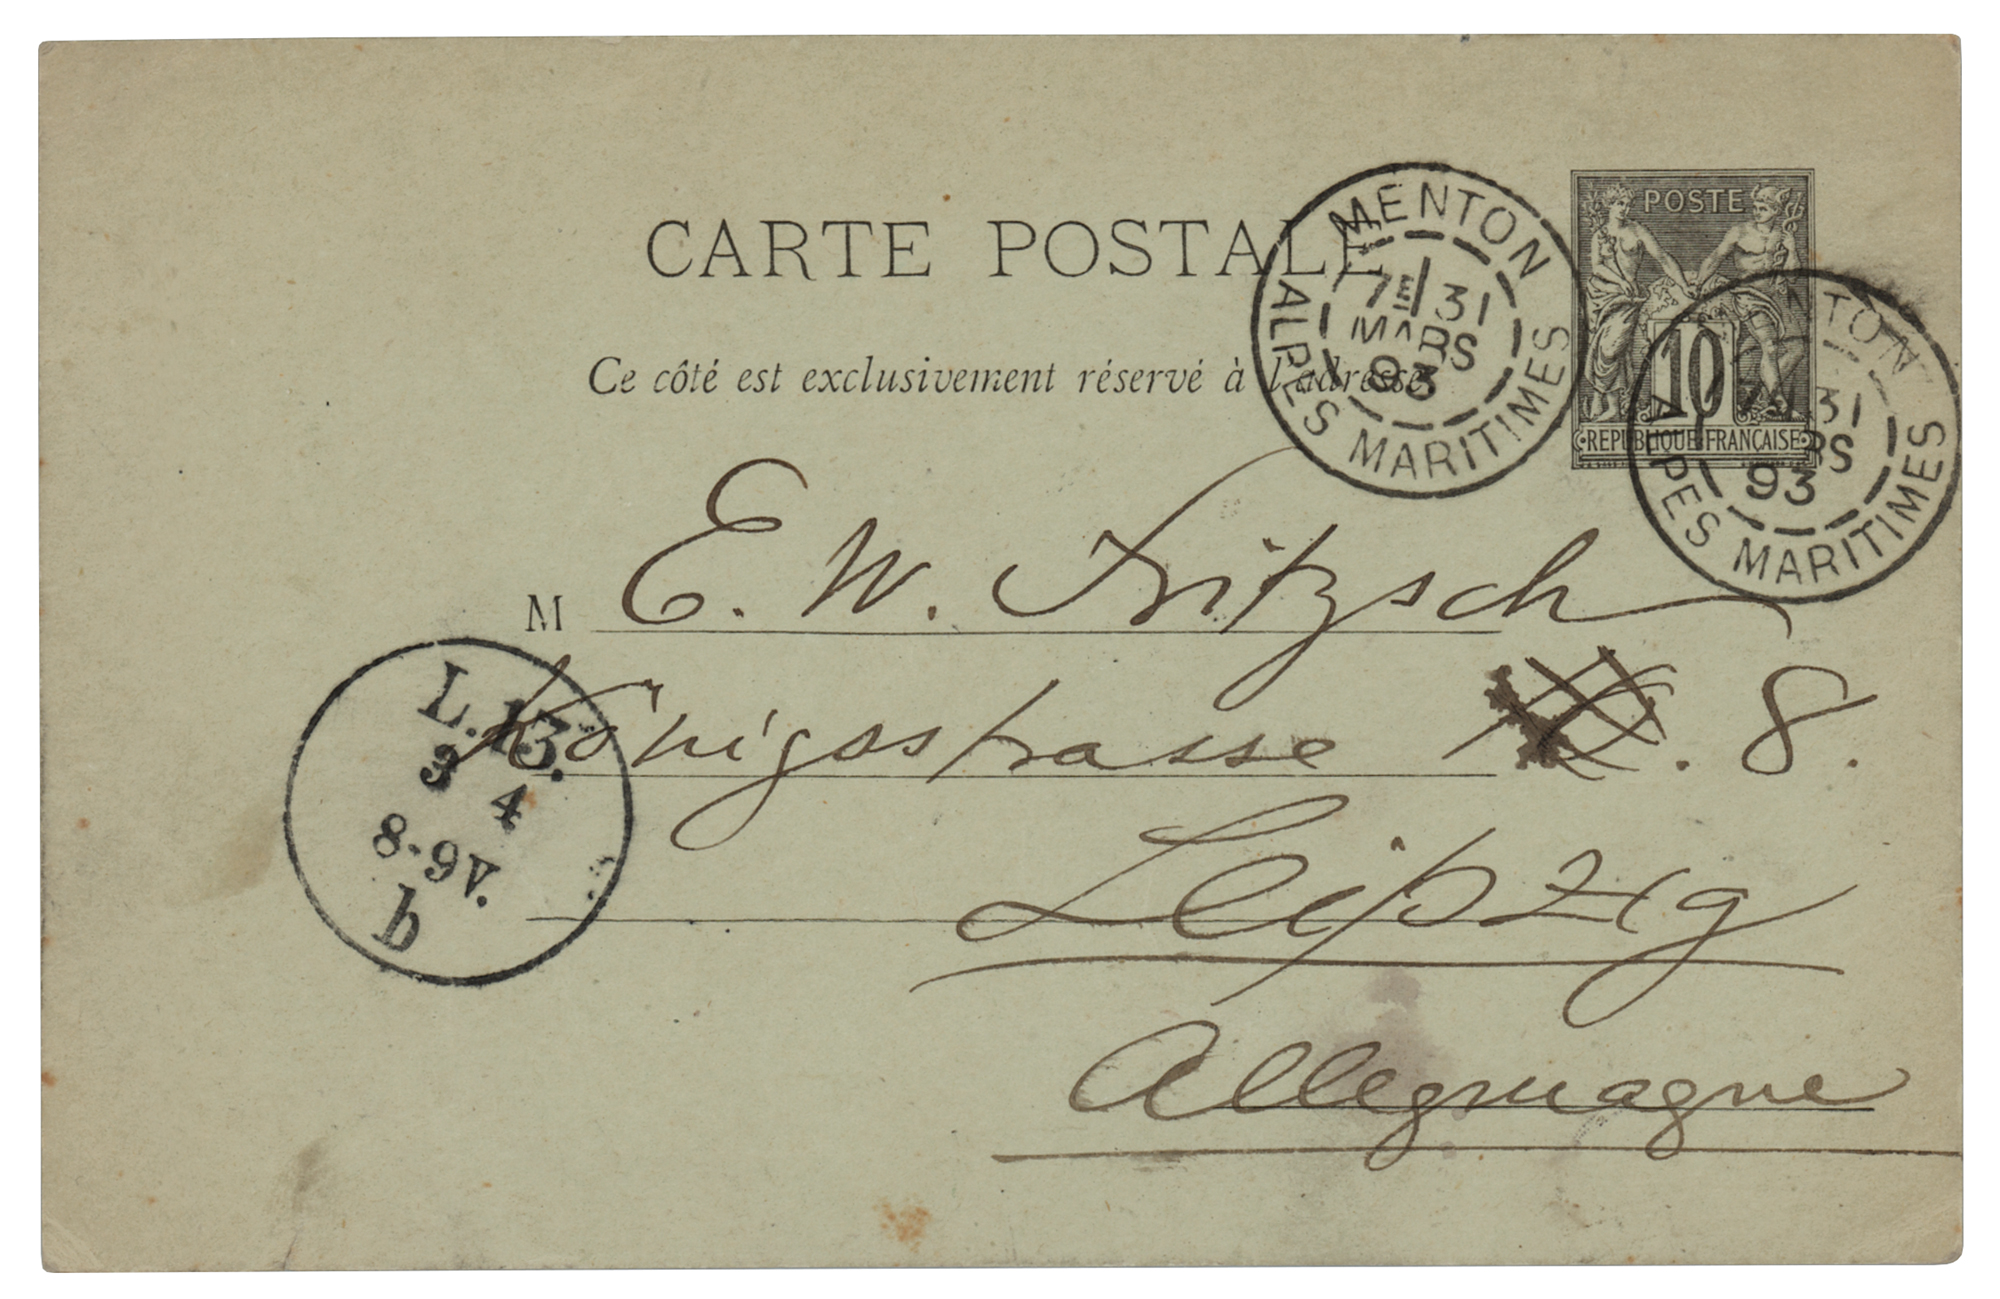 CARTE POSTALE
Ce côté est exclusivement réservé à l'adresse
MENTON
7E 31
MARS
93
ALPES MARITIMES
POSTE
10
REPUBLIQUE FRANÇAISE
MENTON
31
MARS
93
ALPES MARITIMES
M E. W. Fritzsch
Königsstrasse . 8.
Leipzig
Allegmagne
L. 13.
3 4
8-9V.
b